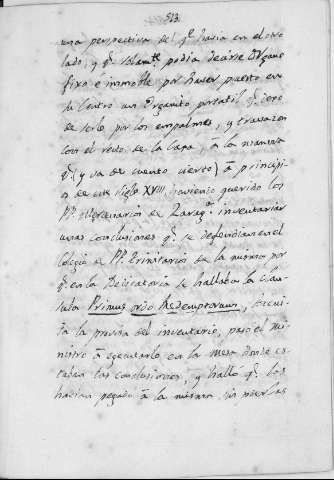 513
una perspectiva del q.e havia en el otro
lado, y q.e solam.te podia decirse Organo
fixo è inmoble por haver puerto en
su Centro un Organito portatil q.e dexò
de serlo por los empalmes, y travazon
con el resto de la Caxa, à la manera
q.e (y va de cuento cierto) à principi-
os de este siglo XVIII, haviendo querido los
PP. Mercenarios de Zarag.a inventariar
unas conclusiones q.e se defendian en el
Colegio de PP. Trinitarios de la misma por
q.e en la Dedicatoria se hallaba la Clau-
sula Primus ordo Redemptorum,
ta la provision del inventario, pasò el mi-
nistro à egecutarlo en la mesa donde es-
taban las conclusiones, y hallò q.e las
havian pegado à la misma, sin poderlas